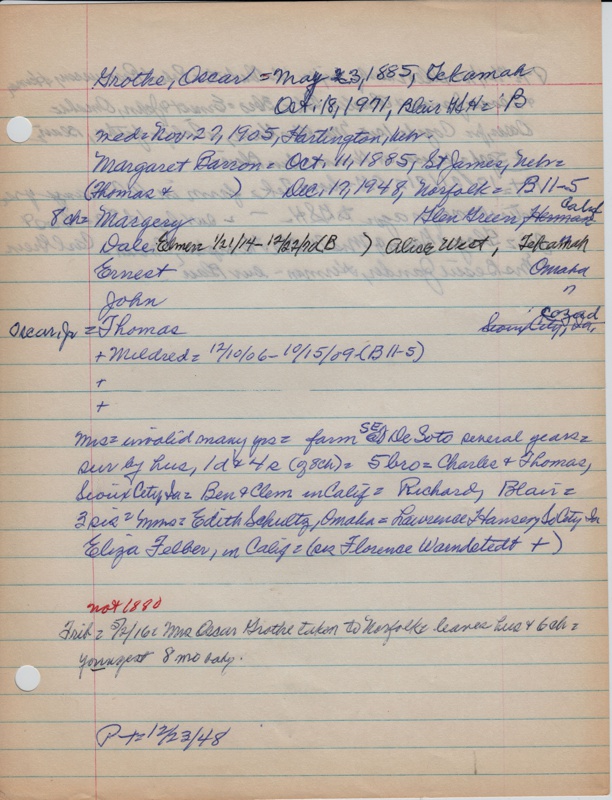 Grothe, Oscar = May 23, 1885, Tekamah
Oct. 18, 1971, Blair = B
med = Nov. 27, 1905, Hartington, Nebr.
Margaret Barron = Oct. 11, 1885, St James, Nebr =
(Thomas + ) Dec. 17, 1948, Norfolk = B 11-5
8 ch = Margery Glen Green, Herman
Dale Elmer 1/21/14 - 12/22/ B ) Alice West, Tekamah
Ernest Omaha
John
Oscar, Jr = Thomas Sioux City, Ia. cozad
+ Mildred = 12/10/06 - 10/15/09 (B 11-5)
+
+
Mrs = invalid many yrs = farm SE De Soto several years =
sur by hus, 1 d + 4 s (of 8 ch) = 5 bro = Charles + Thomas,
Sioux City, Ia = Ben + Clem in Calif = Richard, Blair =
3 sis = Mmes = Edith Schultz, Omaha = Lawrence Hansen, So City Ia
Eliza Felber, in Calif = (sis Florence Warnstedt +)
not 1880
Trib = /16: Mrs Oscar Grothe taken to Norfolk leaves hus + 6 ch =
youngest 8 mo baby.
P-t = 12/23/48